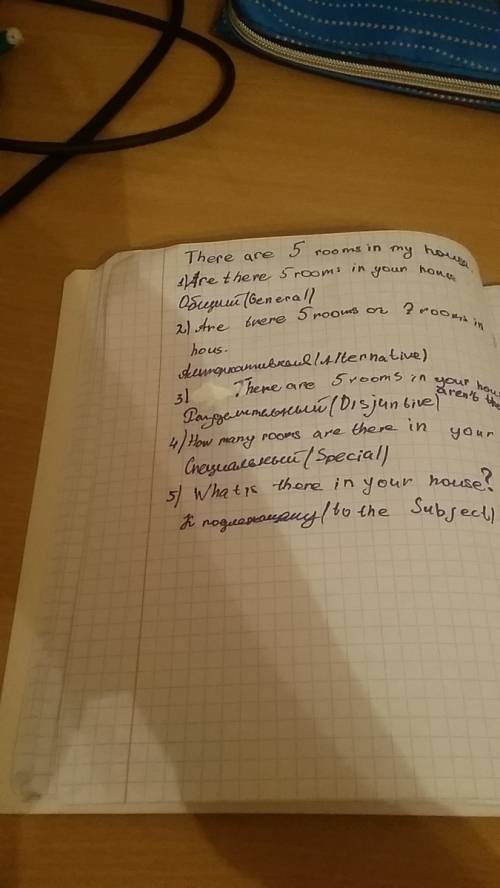 There are 5 rooms in my house.
1) Are there 5 rooms in your house
Общий (General)
2) Are there 5 rooms or 7 rooms in
hous.
Альтернативный (Alternative)
3) There are 5 rooms in your hous
aren't the
Разделительный (Disjuntive)
4) How many rooms are there in your
Специальный (Special)
5) What is there in your house?
К подлежащему (to the Subject)